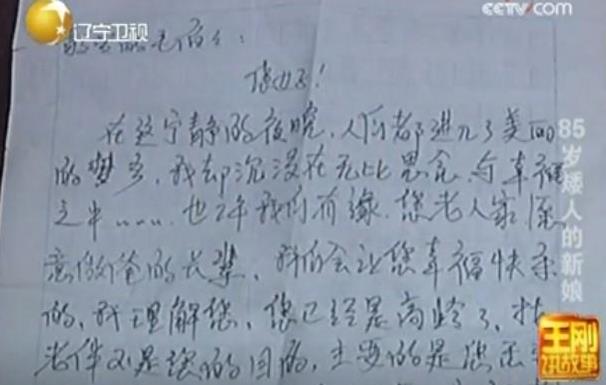 辽宁卫视
CCTV.com
您好!
在这宁静的夜晚,人们都进入了美丽
的梦乡,我却沉浸在无比思念与幸福
之中……也许我们有缘,您老人家愿
意做爸的长辈,我们会让您幸福快乐
的,我理解您,您已经是高龄了,找
老伴不是您的目的,主要的是您
85岁矮人的新娘
王刚
讲故事